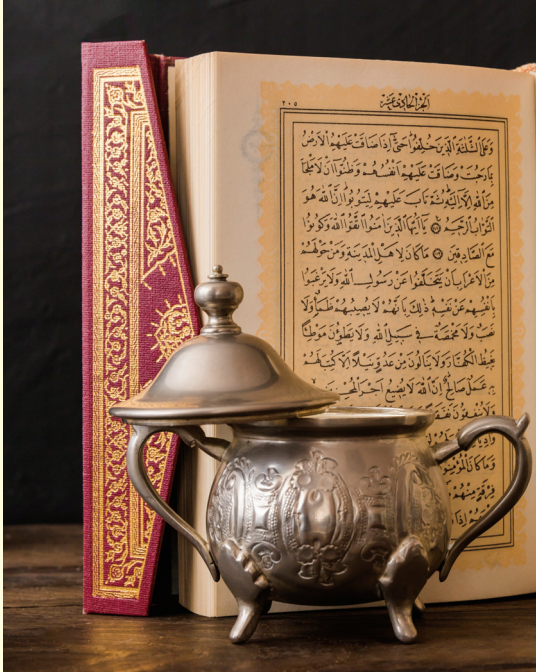 ٢٠٥ الجزء الحادي عشر
وَعَلَى الثَّلٰثَةِ الَّذِينَ خُلِّفُوا حَتَّى إِذَا ضَاقَتْ عَلَيْهِمُ الْأَرْضُ
بِمَا رَحُبَتْ وَضَاقَتْ عَلَيْهِمْ أَنْفُسُهُمْ وَظَنُّوا أَنْ لَا مَلْجَأَ
مِنَ اللهِ إِلَّا إِلَيْهِ ثُمَّ تَابَ عَلَيْهِمْ لِيَتُوبُوا إِنَّ اللهَ هُوَ
التَّوَّابُ الرَّحِيمُ يَا أَيُّهَا الَّذِينَ اٰمَنُوا اتَّقُوا اللهَ وَكُونُوا
مَعَ الصَّادِقِينَ مَا كَانَ لِأَهْلِ الْمَدِينَةِ وَمَنْ حَوْلَهُمْ
مِنَ الْأَعْرَابِ أَنْ يَتَخَلَّفُوا عَنْ رَسُولِ اللهِ وَلَا يَرْغَبُوا
بِأَنْفُسِهِمْ عَنْ نَفْسِهِ ذٰلِكَ بِأَنَّهُمْ لَا يُصِيبُهُمْ ظَمَأٌ وَلَا
نَصَبٌ وَلَا مَخْمَصَةٌ فِي سَبِيلِ اللهِ وَلَا يَطَؤُنَ مَوْطِئًا
يَغِيظُ الْكُفَّارَ وَلَا يَنَالُونَ مِنْ عَدُوٍّ نَيْلًا إِلَّا كُتِبَ لَهُمْ
بِهِ عَمَلٌ صَالِحٌ إِنَّ اللهَ لَا يُضِيعُ أَجْرَ
وَلَا يُنْفِقُونَ نَفَقَةً
وَادِيًا
وَمَا كَانَ الْمُؤْمِنُونَ
فِرْقَةٍ مِنْهُمْ
قَوْمَهُمْ إِذَا